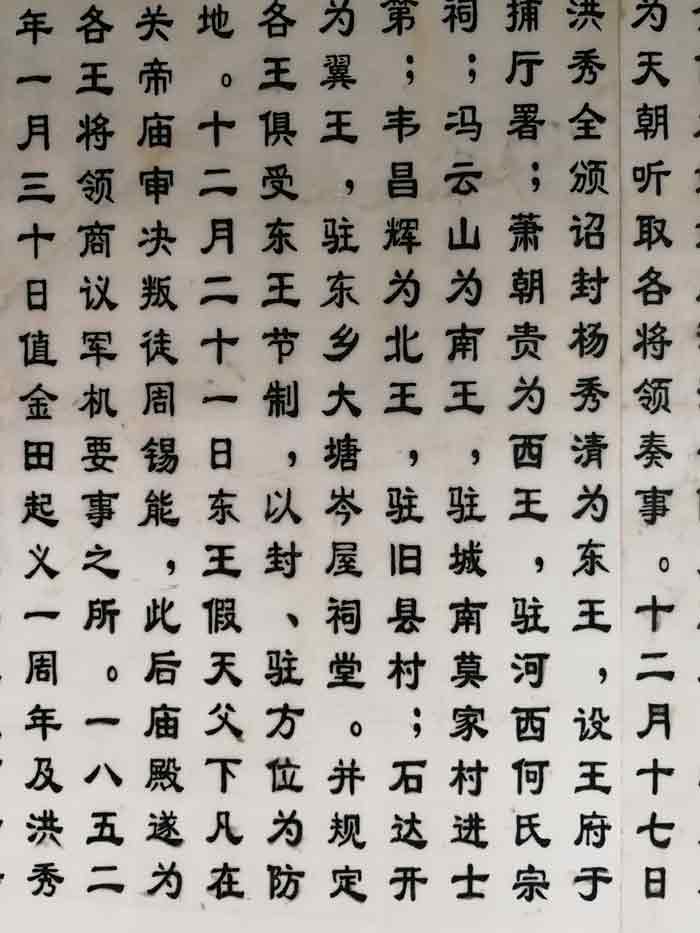 为天朝听取各将领奏事。十二月十七日
洪秀全颁诏封杨秀清为东王，设王府于
捕厅署；萧朝贵为西王，驻河西何氏宗
祠；冯云山为南王，驻城南莫家村进士
第；韦昌辉为北王，驻旧县村；石达开
为翼王，驻东乡大塘岑屋祠堂。并规定
各王俱受东王节制，以封、驻方位为防
地。十二月二十一日东王假天父下凡在
关帝庙审决叛徒周锡能，此后庙殿遂为
各王将领商议军机要事之所。一八五二
年一月三十日值金田起义一周年及洪秀